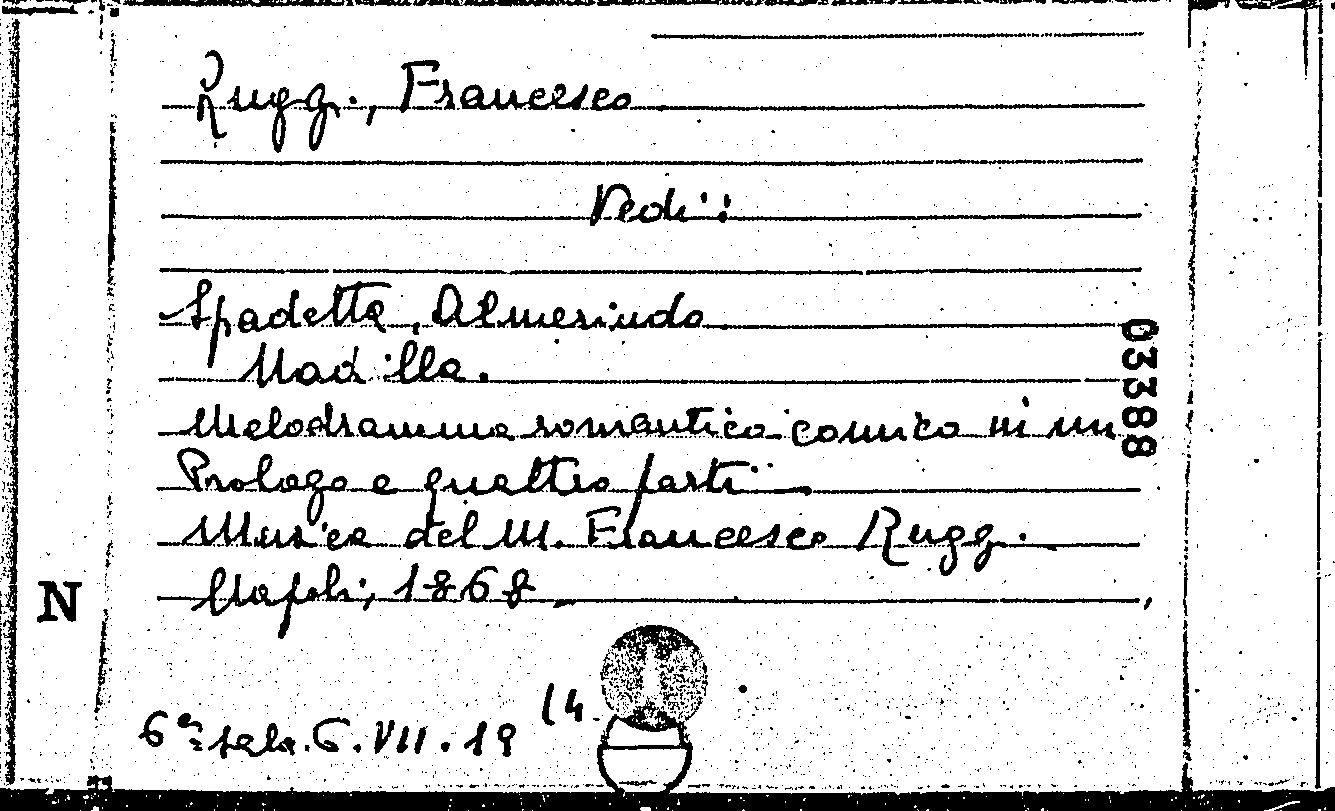 Ruggi, Francesco
Vedi:
Spadetta, Almerindo
Nadilla.
Melodramma romantico comico in un
Prologo e quattro parti
Musica del M. Francesco Ruggi.
Napoli, 1868
03388
N
6ª sala. 6. VII. 19 (4.